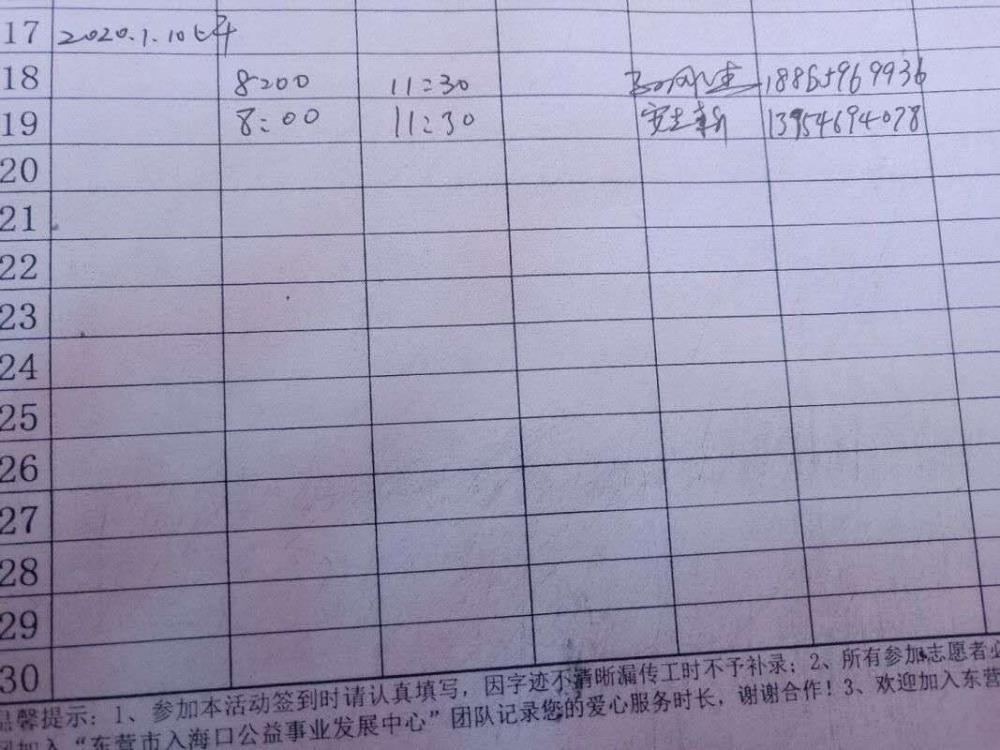 17 2020.1.10上午
18 8:00 11:30 18865969936
19 8:00 11:30 安主新 13954694078
20
21
22
23
24
25
26
27
28
29
30
温馨提示：1、参加本活动签到时请认真填写，因字迹不清晰漏传工时不予补录；2、所有参加志愿者必
加入“东营市入海口公益事业发展中心”团队记录您的爱心服务时长，谢谢合作！3、欢迎加入东营